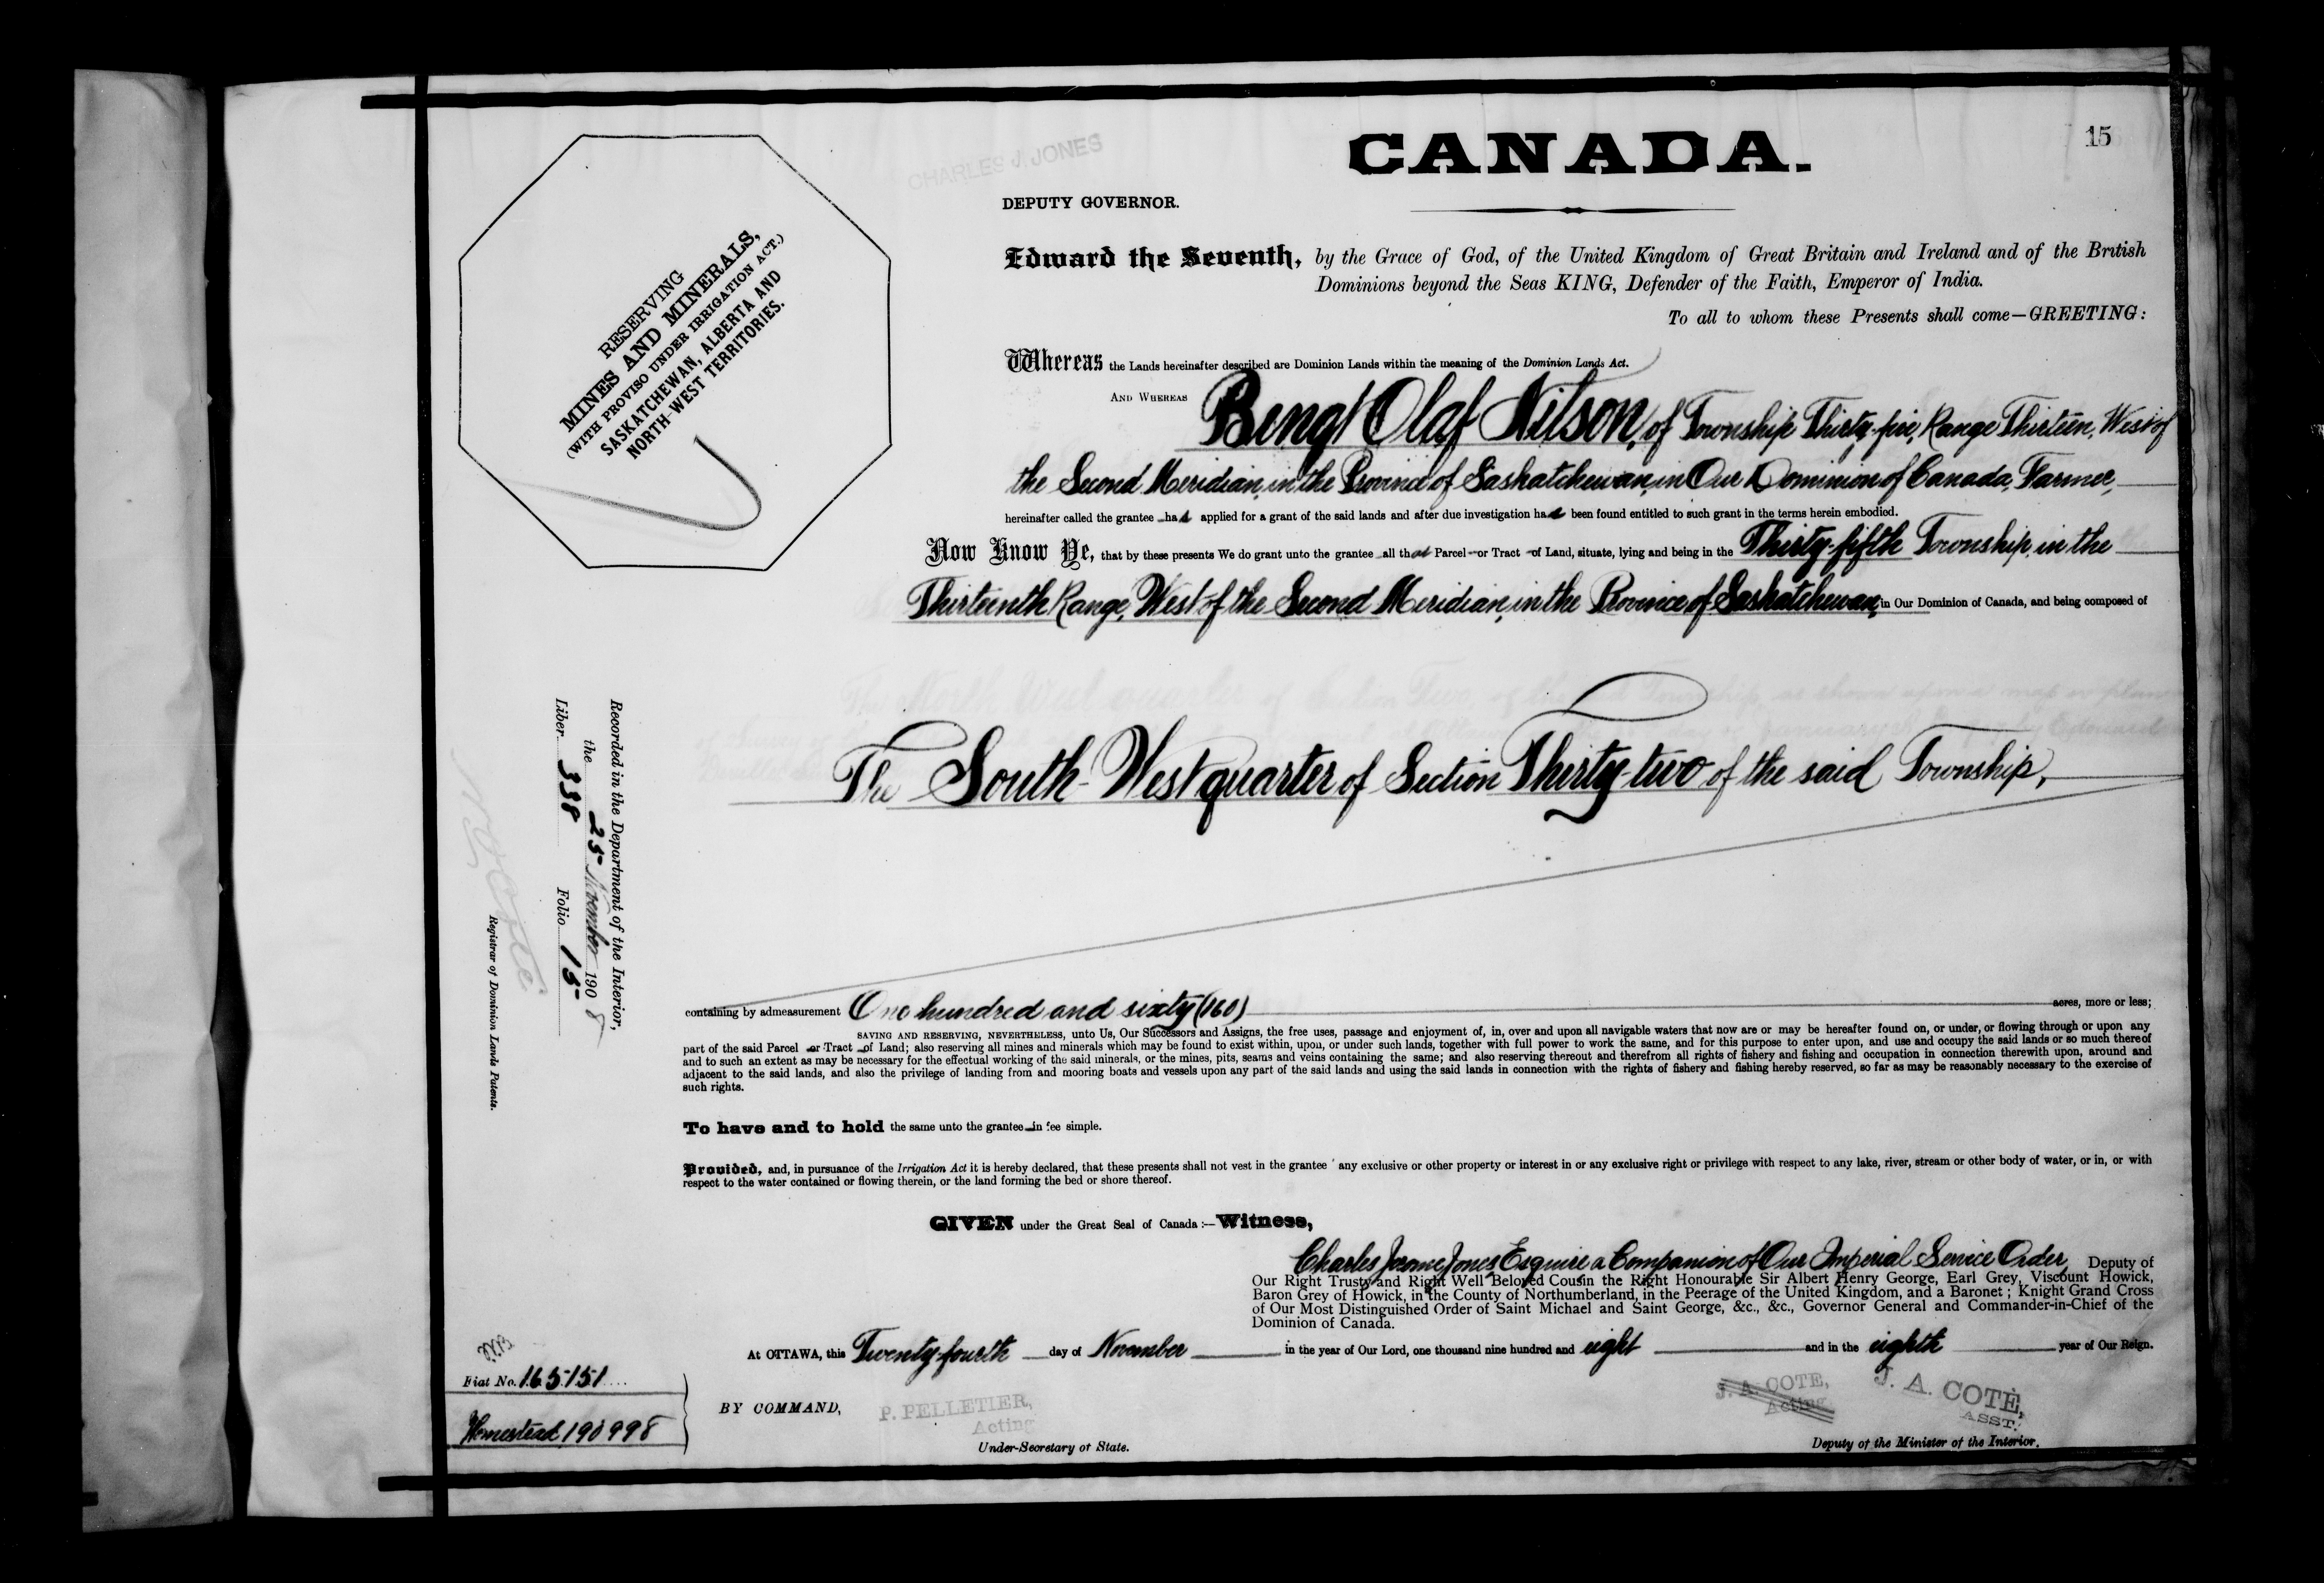 15
CANADA.
CHARLES J. JONES
DEPUTY GOVERNOR.
RESERVING
MINES AND MINERALS,
(WITH PROVISO UNDER IRRIGATION ACT.)
SASKATCHEWAN, ALBERTA AND
NORTH-WEST TERRITORIES.
Edward the Seventh, by the Grace of God, of the United Kingdom of Great Britain and Ireland and of the British
Dominions beyond the Seas KING, Defender of the Faith, Emperor of India.
To all to whom these Presents shall come—GREETING:
Whereas the Lands hereinafter described are Dominion Lands within the meaning of the Dominion Lands Act.
AND WHEREAS Bengt Olaf Nilson, of Township Thirty-five, Range Thirteen, West of
the Second Meridian, in the Province of Saskatchewan, in Our Dominion of Canada, Farmer,
hereinafter called the grantee has applied for a grant of the said lands and after due investigation has been found entitled to such grant in the terms herein embodied.
Now Know Ye, that by these presents We do grant unto the grantee all that Parcel or Tract of Land, situate, lying and being in the Thirty-fifth Township, in the
Thirteenth Range, West of the Second Meridian, in the Province of Saskatchewan, in Our Dominion of Canada, and being composed of
The South-West quarter of Section Thirty-two of the said Township,
Recorded in the Department of the Interior,
the 25 November 1908
Liber 338 Folio 15
N. O. Coté
Registrar of Dominion Lands Patents.
containing by admeasurement One hundred and sixty (160) acres, more or less;
SAVING AND RESERVING, NEVERTHELESS, unto Us, Our Successors and Assigns, the free uses, passage and enjoyment of, in, over and upon all navigable waters that now are or may be hereafter found on, or under, or flowing through or upon any
part of the said Parcel or Tract of Land; also reserving all mines and minerals which may be found to exist within, upon, or under such lands, together with full power to work the same, and for this purpose to enter upon, and use and occupy the said lands or so much thereof
and to such an extent as may be necessary for the effectual working of the said minerals, or the mines, pits, seams and veins containing the same; and also reserving thereout and therefrom all rights of fishery and fishing and occupation in connection therewith upon, around and
adjacent to the said lands, and also the privilege of landing from and mooring boats and vessels upon any part of the said lands and using the said lands in connection with the rights of fishery and fishing hereby reserved, so far as may be reasonably necessary to the exercise of
such rights.
To have and to hold the same unto the grantee in fee simple.
Provided, and, in pursuance of the Irrigation Act it is hereby declared, that these presents shall not vest in the grantee any exclusive or other property or interest in or any exclusive right or privilege with respect to any lake, river, stream or other body of water, or in, or with
respect to the water contained or flowing therein, or the land forming the bed or shore thereof.
GIVEN under the Great Seal of Canada:—Witness,
Charles Jerome Jones Esquire a Companion of Our Imperial Service Order, Deputy of
Our Right Trusty and Right Well Beloved Cousin the Right Honourable Sir Albert Henry George, Earl Grey, Viscount Howick,
Baron Grey of Howick, in the County of Northumberland, in the Peerage of the United Kingdom, and a Baronet; Knight Grand Cross
of Our Most Distinguished Order of Saint Michael and Saint George, &c., &c., Governor General and Commander-in-Chief of the
Dominion of Canada.
At OTTAWA, this Twenty-fourth day of November in the year of Our Lord, one thousand nine hundred and eight and in the eighth year of Our Reign.
Fiat No. 165151
Homestead 190998
BY COMMAND,
P. PELLETIER,
Acting
Under-Secretary of State.
J. A. COTE,
Acting
J. A. COTÉ,
ASST.
Deputy of the Minister of the Interior.